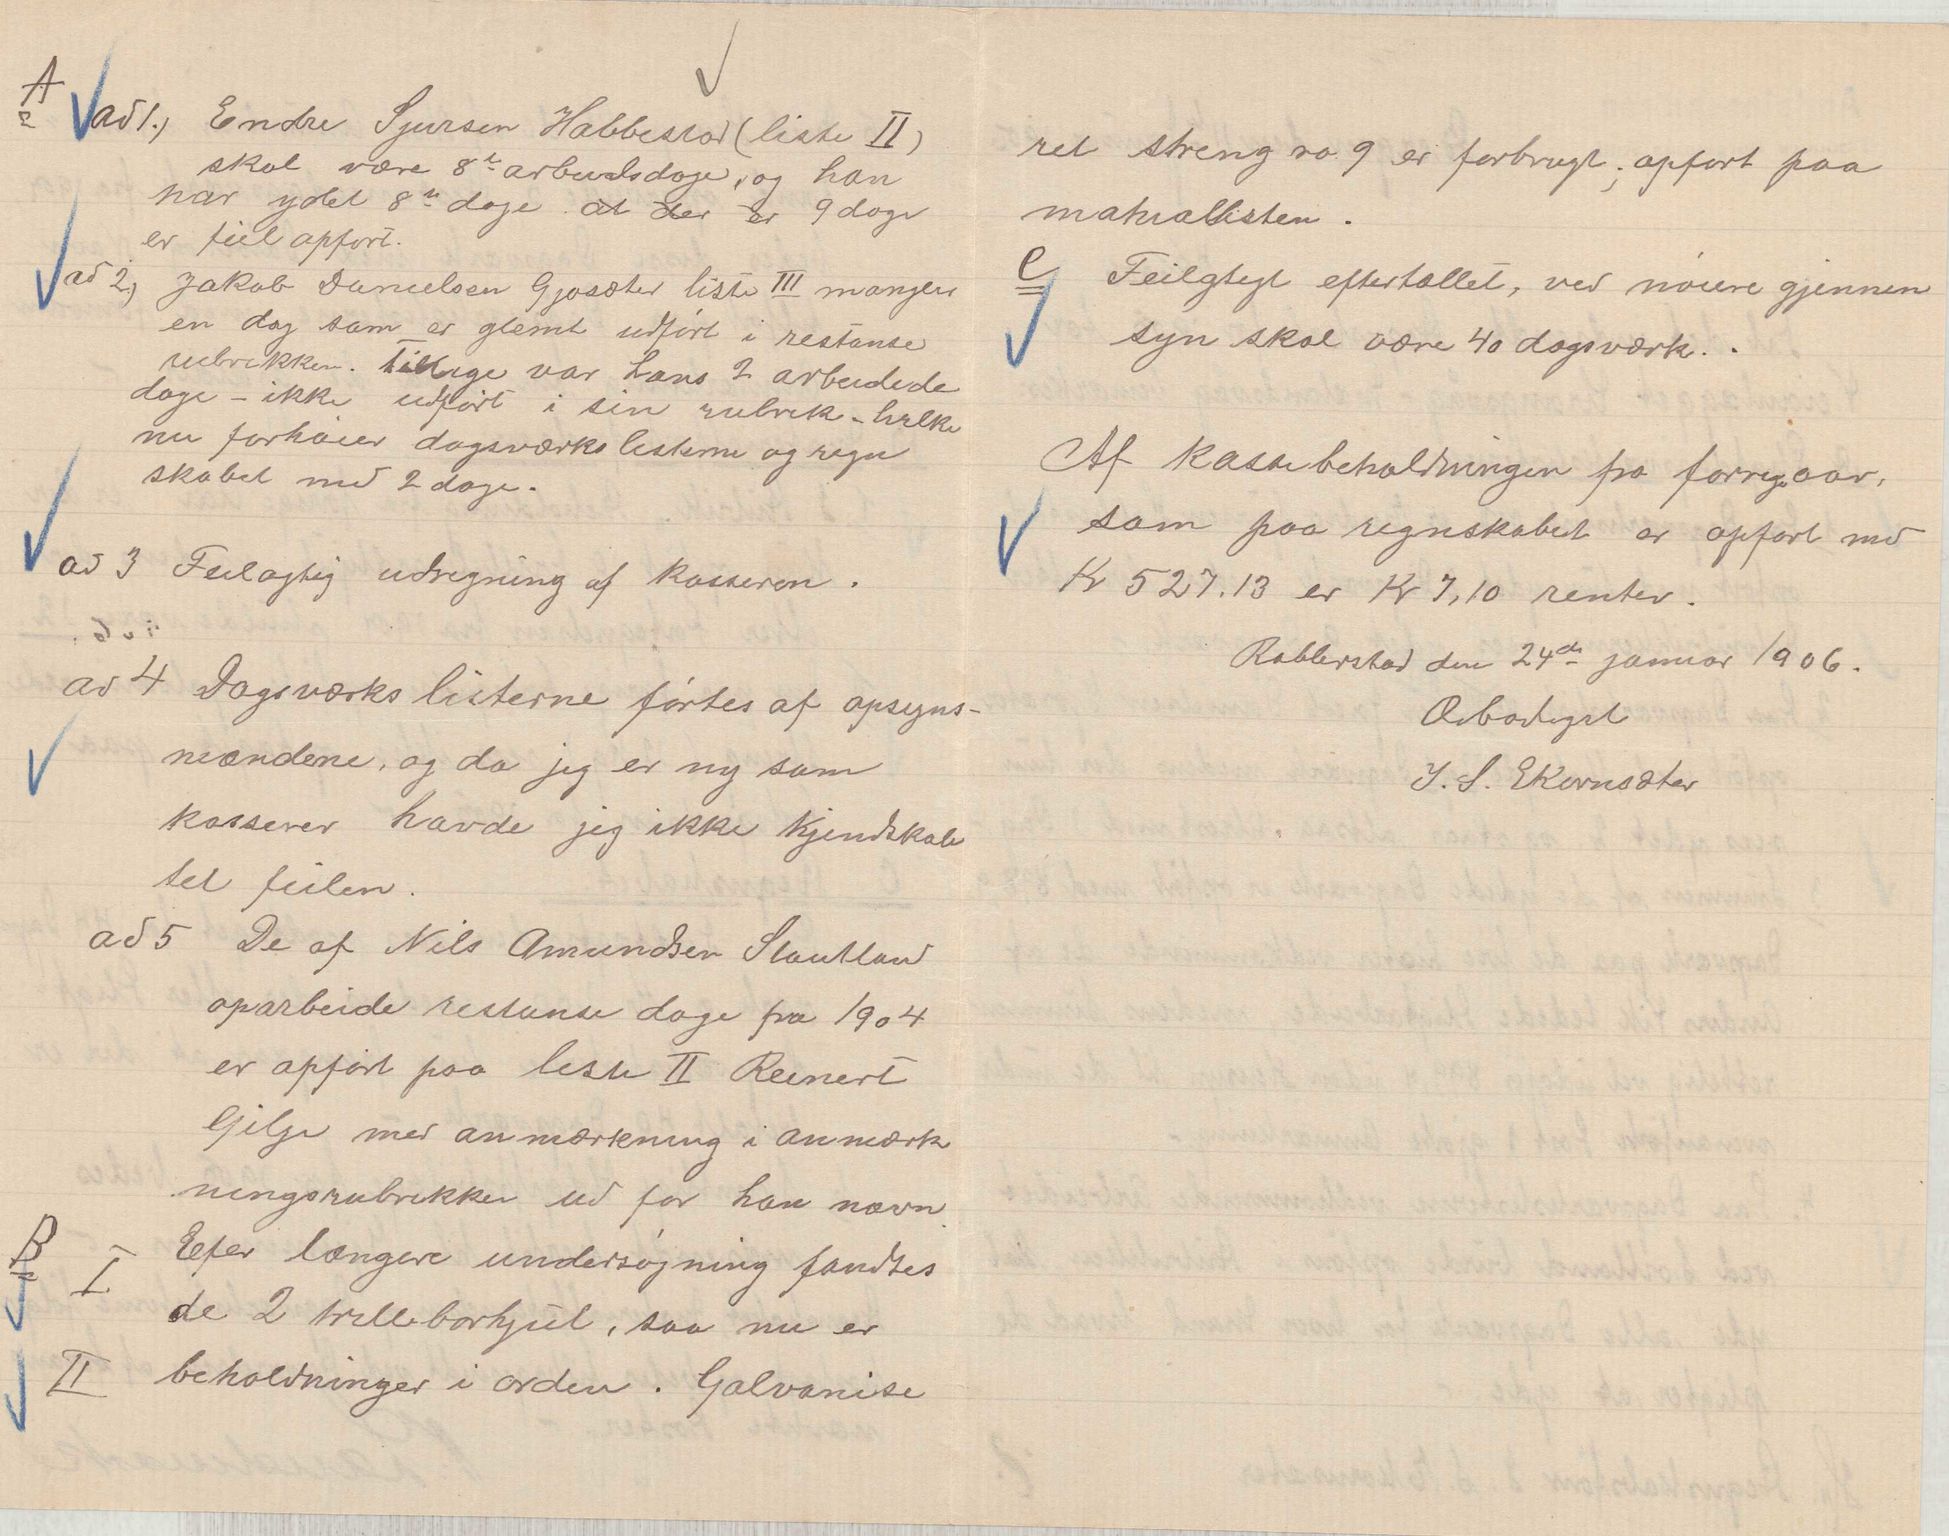 A
ad 1.) Endre Sjursen Habbestad (liste II)
skal være 8 arbeidsdage, og han
har ydet 8 dage at der er 9 dage
er feil opført.
ad 2.) Jakob Danielsen Gjøsæter liste III mangler
en dag som er glemt udført i restanse
rubrikken. Tillige var hans 2 arbeidede
dage - ikke udført i sin rubrik - hvilke
nu forhøier dagsværks listerne og regn
skabet med 2 dage.
ad 3 Feilagtig udregning af kasseren.
ad 4 Dagsværks listerne førtes af opsyns-
mændene, og da jeg er ny som
kasserer havde jeg ikke kjendskab
tel feilen.
ad 5 De af Nils Amundsen Stautland
oparbeide restanse dage fra 1904
er opført paa liste II Reinert
Gilje med anmærkning i anmærk
ningsrubrikken ud for hans navn.
B
I Efter længere undersøgning fandtes
de 2 trillebørhjul, saa nu er
II beholdninger i orden. Galvanise
ret streng no. 9 er forbrugt; opført paa
matriallisten.
C Feilgtigt eftertallet, ved nøiere gjennem
syn skal være 40 dagsværk.
Af kassebeholdningen fra forrige aar,
som paa regnskabet er opført med
Kr 527.13 er Kr 7,10 renter.
den 24de januar 1906.
Ærbødigst
J. S. Ekornsæter